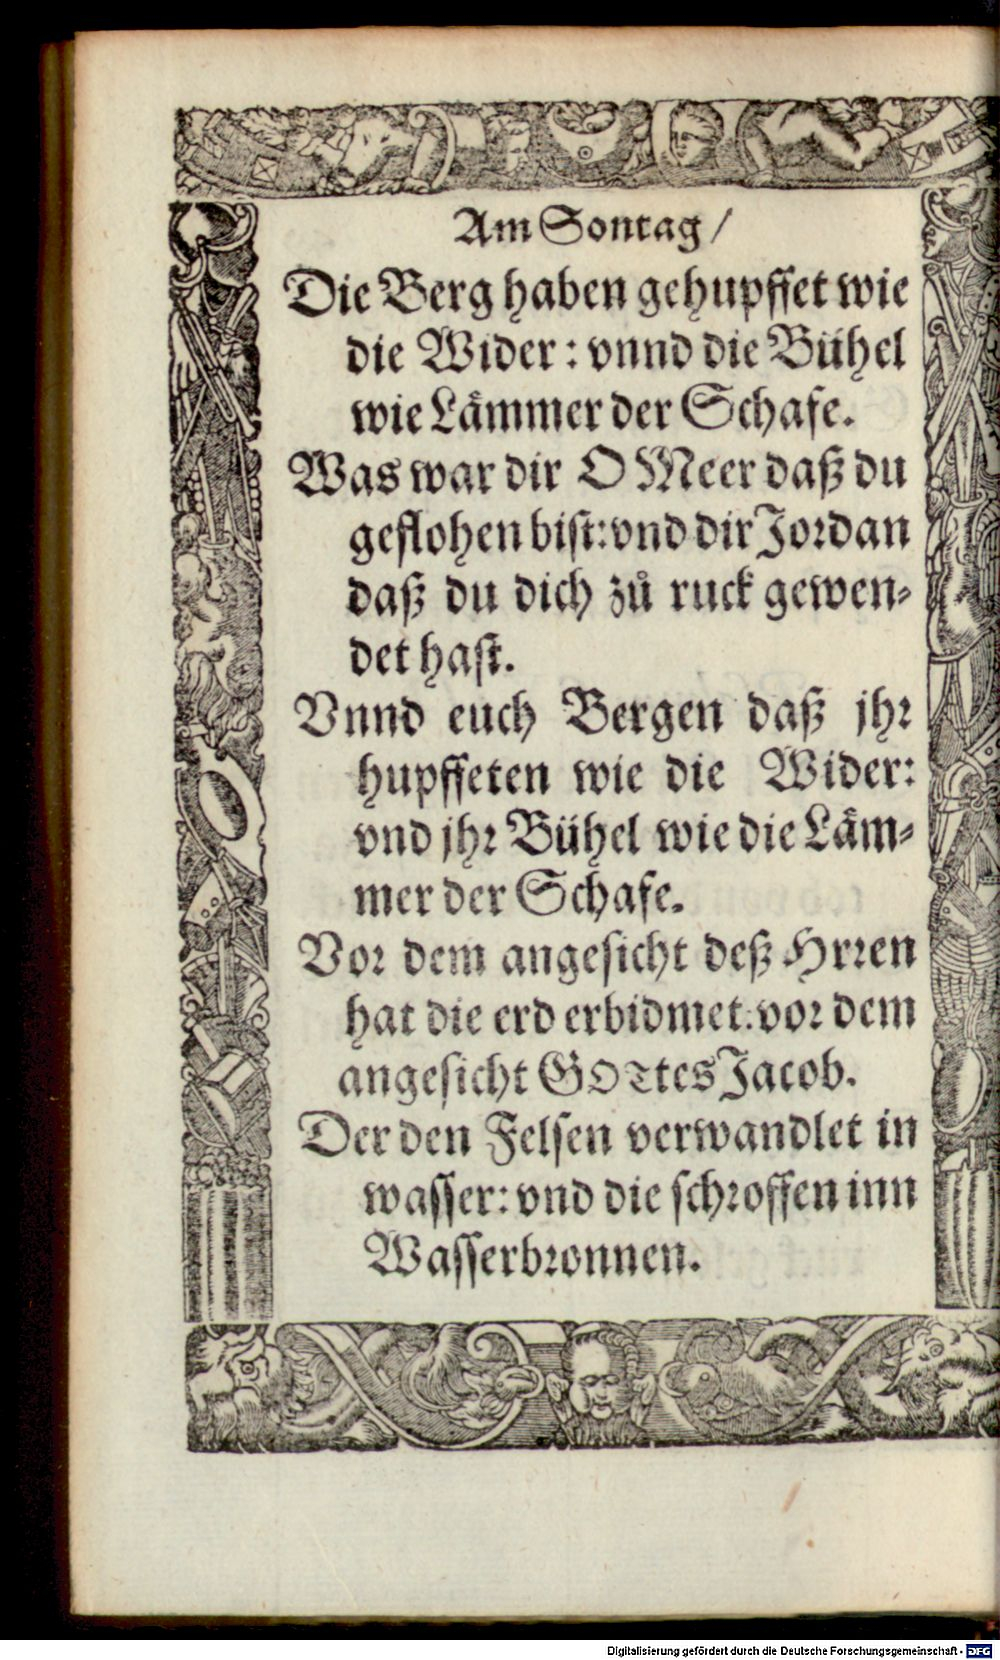 Am Sontag /
Die Berg haben gehupffet wie
die Wider : vnnd die Bühel
wie Lämmer der Schafe.
Was war dir O Meer daß du
geflohen bist: vnd dir Jordan
daß du dich zů ruck gewen⸗
det hast.
Vnnd euch Bergen daß jhr
hupffeten wie die Wider:
vnd jhr Bühel wie die Läm⸗
mer der Schafe.
Vor dem angesicht deß Hrren
hat die erd erbidmet: vor dem
angesicht GOTtes Jacob.
Der den Felsen verwandlet in
wasser: vnd die schroffen inn
Wasserbronnen.
Digitalisierung gefördert durch die Deutsche Forschungsgemeinschaft - DFG